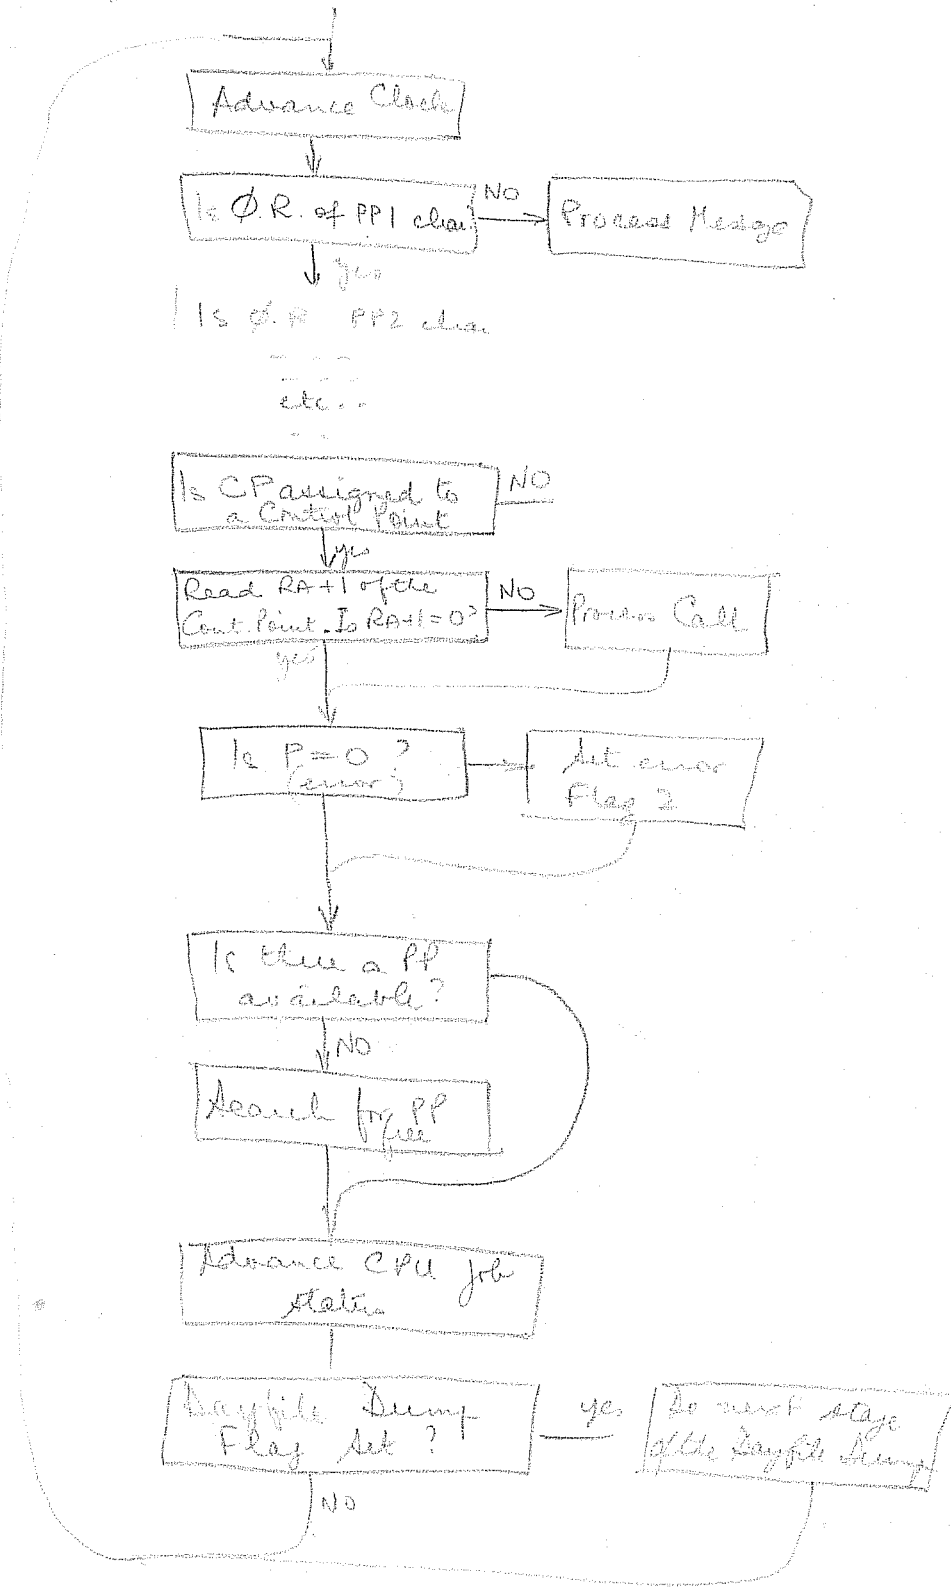 Advance Clock
Is Ø.R. of PP1 clear?
NO
Process Message
yes
Is Ø.R PP2 clear
etc..
Is CP assigned to
a Control Point
NO
yes
Read RA+1 of the
Cont. Point. Is RA+1=0?
NO
Process Call
yes
Is P=0 ?
(error)
Set error
Flag 2
Is there a PP
available?
NO
Search for PP
free
Advance CPU job
status
Dayfile Dump
Flag Set ?
yes
Do next stage
of the Dayfile Dump
NO